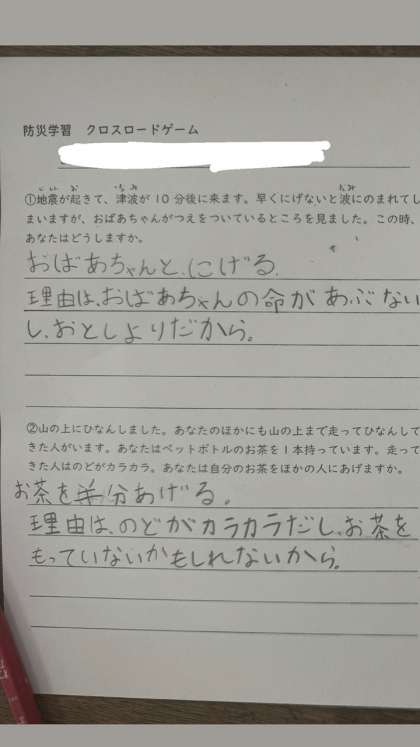 防災学習 クロスロードゲーム
①地震が起きて、津波が10分後に来ます。早くにげないと波にのまれてし
まいますが、おばあちゃんがつえをついているところを見ました。この時、
あなたはどうしますか。
おばあちゃんと、にげる。
理由は、おばあちゃんの命があぶない
し、おとしよりだから。
②山の上にひなんしました。あなたのほかにも山の上まで走ってひなんして
きた人がいます。あなたはペットボトルのお茶を1本持っています。走って
きた人はのどがカラカラ。あなたは自分のお茶をほかの人にあげますか。
お茶を半分あげる。
理由は、のどがカラカラだし、お茶を
もっていないかもしれないから。